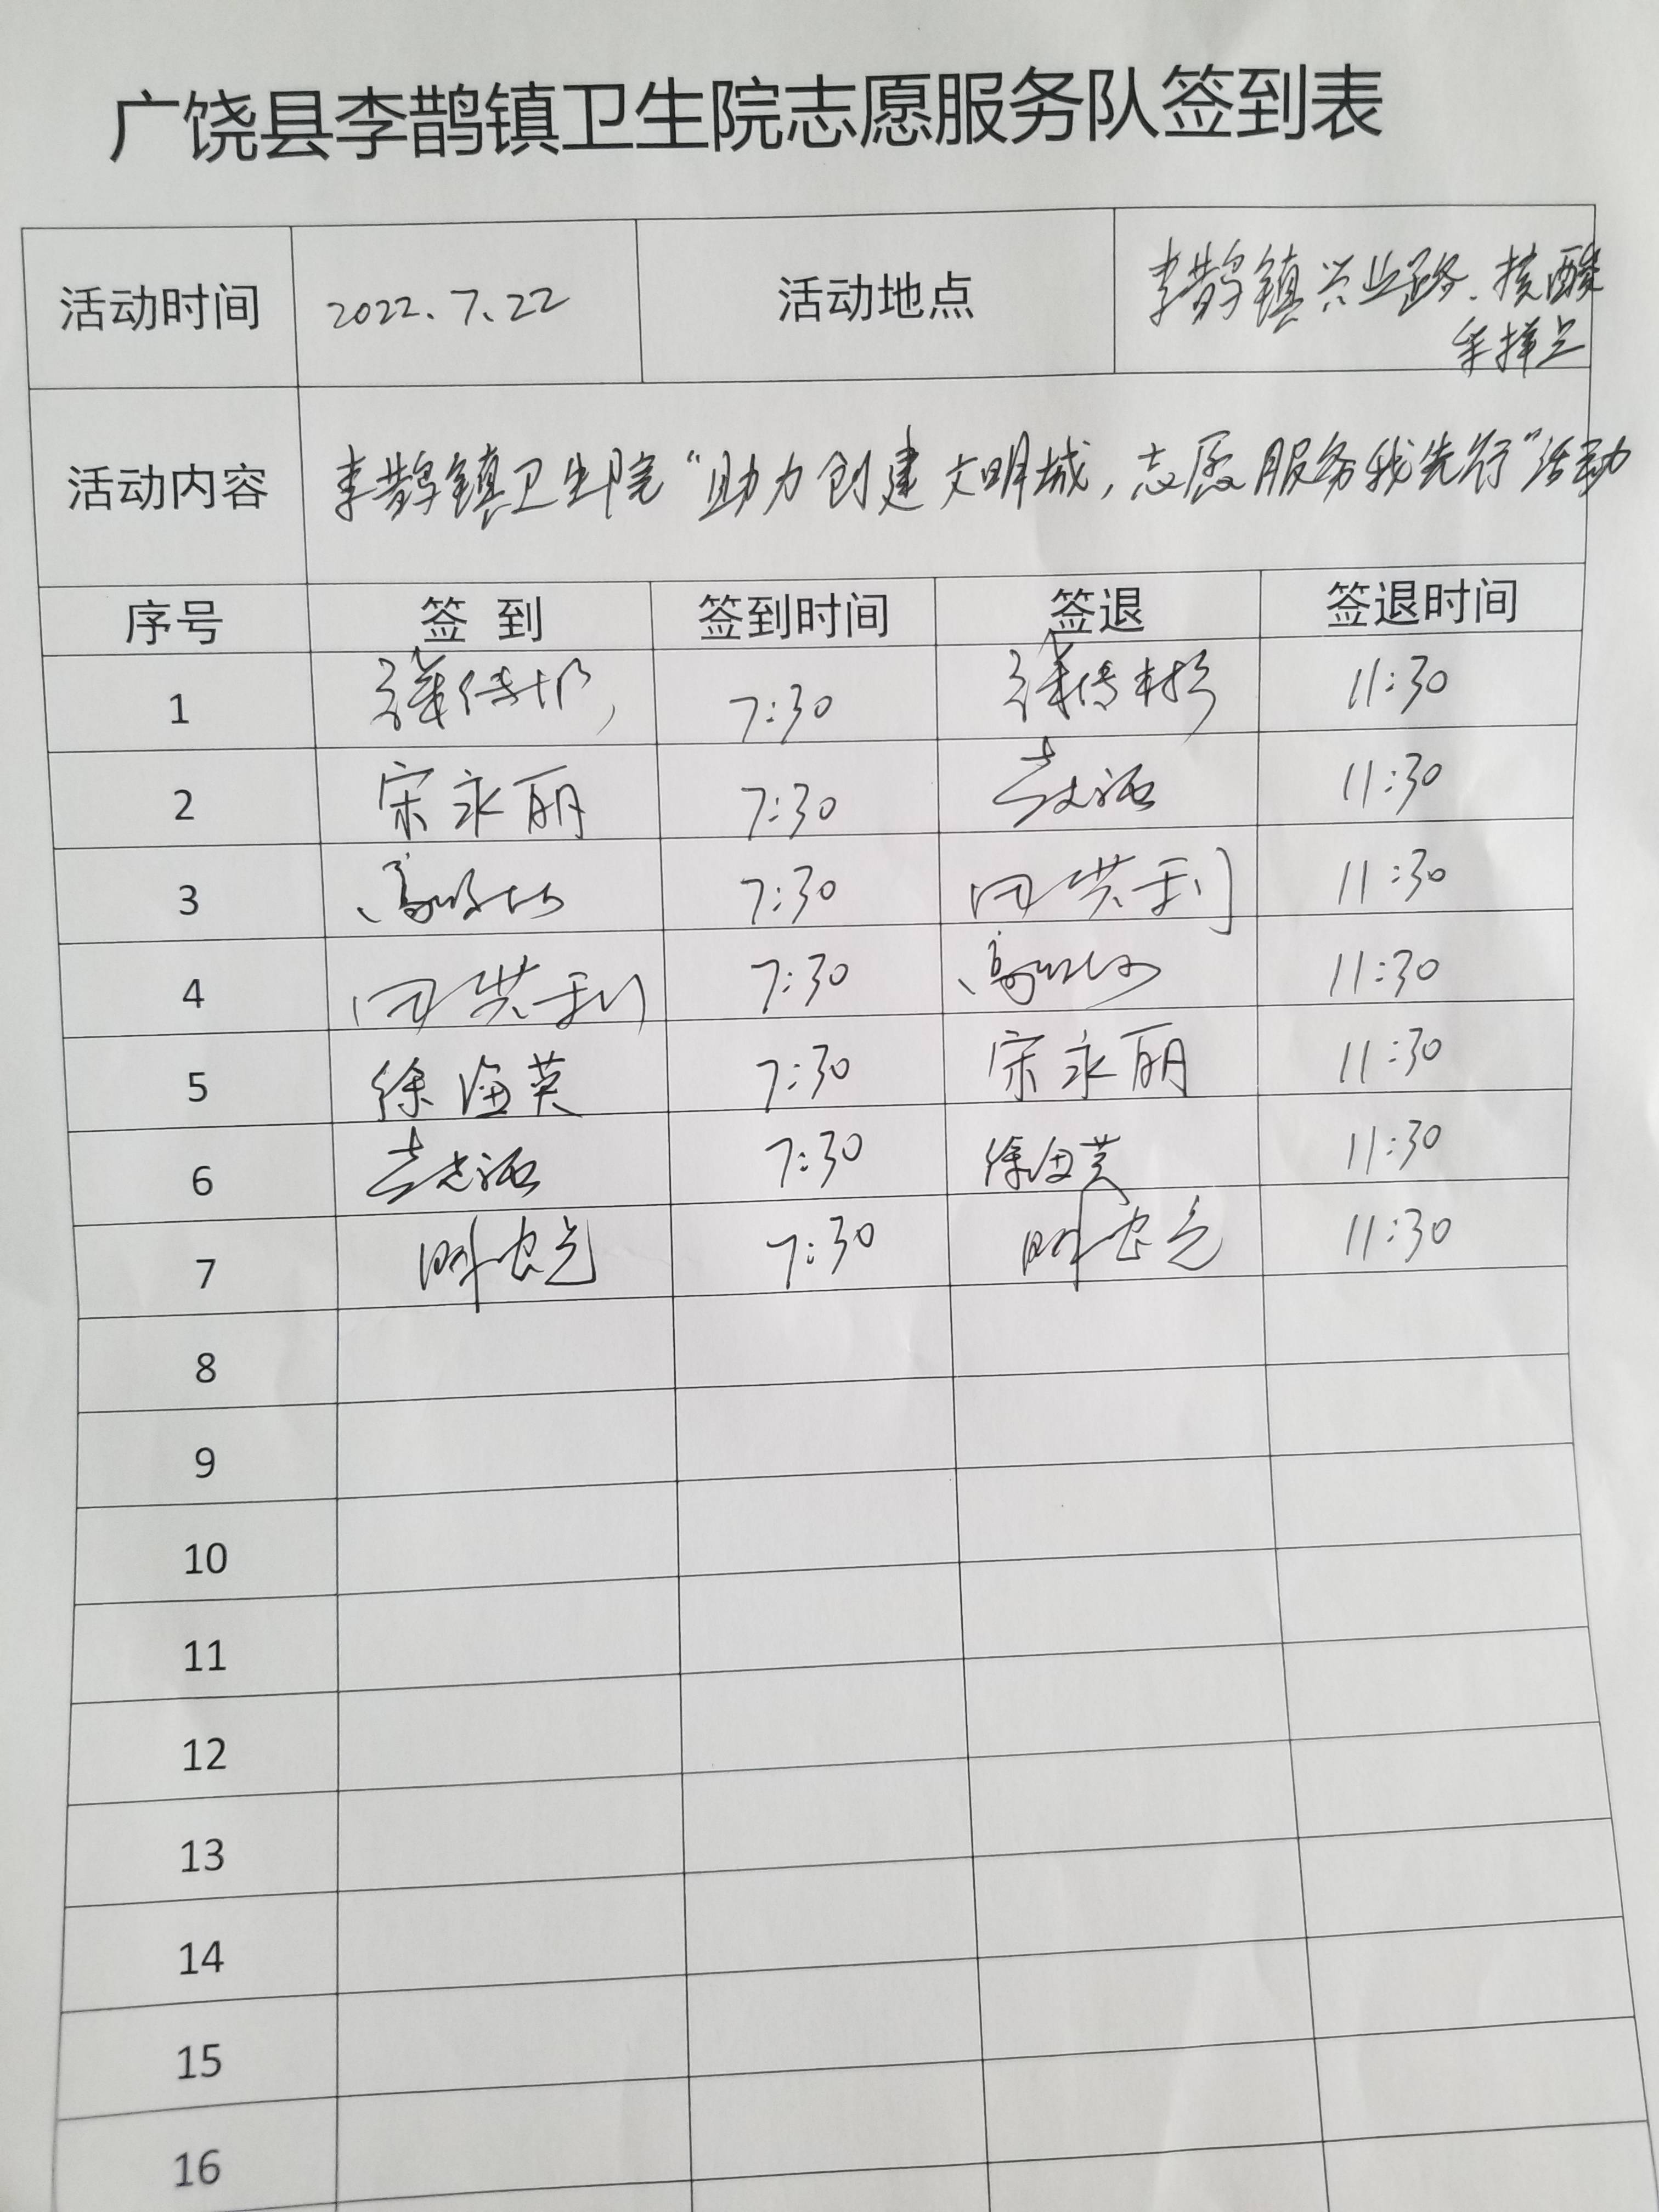 广饶县李鹊镇卫生院志愿服务队签到表
活动时间 2022.7.22 活动地点 李鹊镇兴业路.核酸
采样点
活动内容 李鹊镇卫生院“助力创建文明城,志愿服务我先行”活动
序号 签到 签到时间 签退 签退时间
1 7:30 11:30
2 宋永丽 7:30 11:30
3 7:30 11:30
4 7:30 11:30
5 徐海英 7:30 宋永丽 11:30
6 7:30 徐海英 11:30
7 7:30 11:30
8
9
10
11
12
13
14
15
16